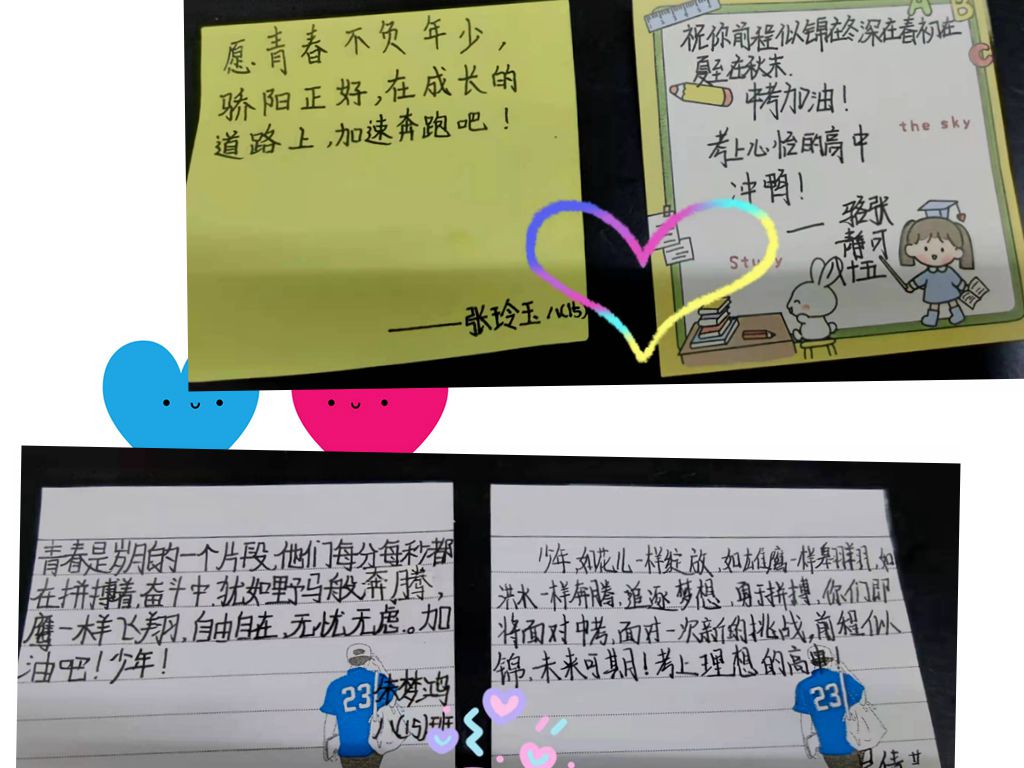 愿青春不负年少，
骄阳正好，在成长的
道路上，加速奔跑吧！
——张玲玉 八(15)
A B
C
祝你前程似锦在冬深在春初在
夏至在秋末.
中考加油！
the sky
考上心怡的高中
冲鸭！
—— 骆张
静可
Study
八十五
青春是岁月的一个片段,他们每分每秒都
在拼搏着,奋斗中,犹如野马般奔腾，
鹰一样飞翔,自由自在,无忧无虑。加
油吧！少年！
23
朱梦鸿
八(15)班
少年,如花儿一样绽放,如雄鹰一样翱翔,如
洪水一样奔腾,追逐梦想,勇于拼搏,你们即
将面对中考,面对一次新的挑战,前程似
锦.未来可期！考上理想的高中！
23